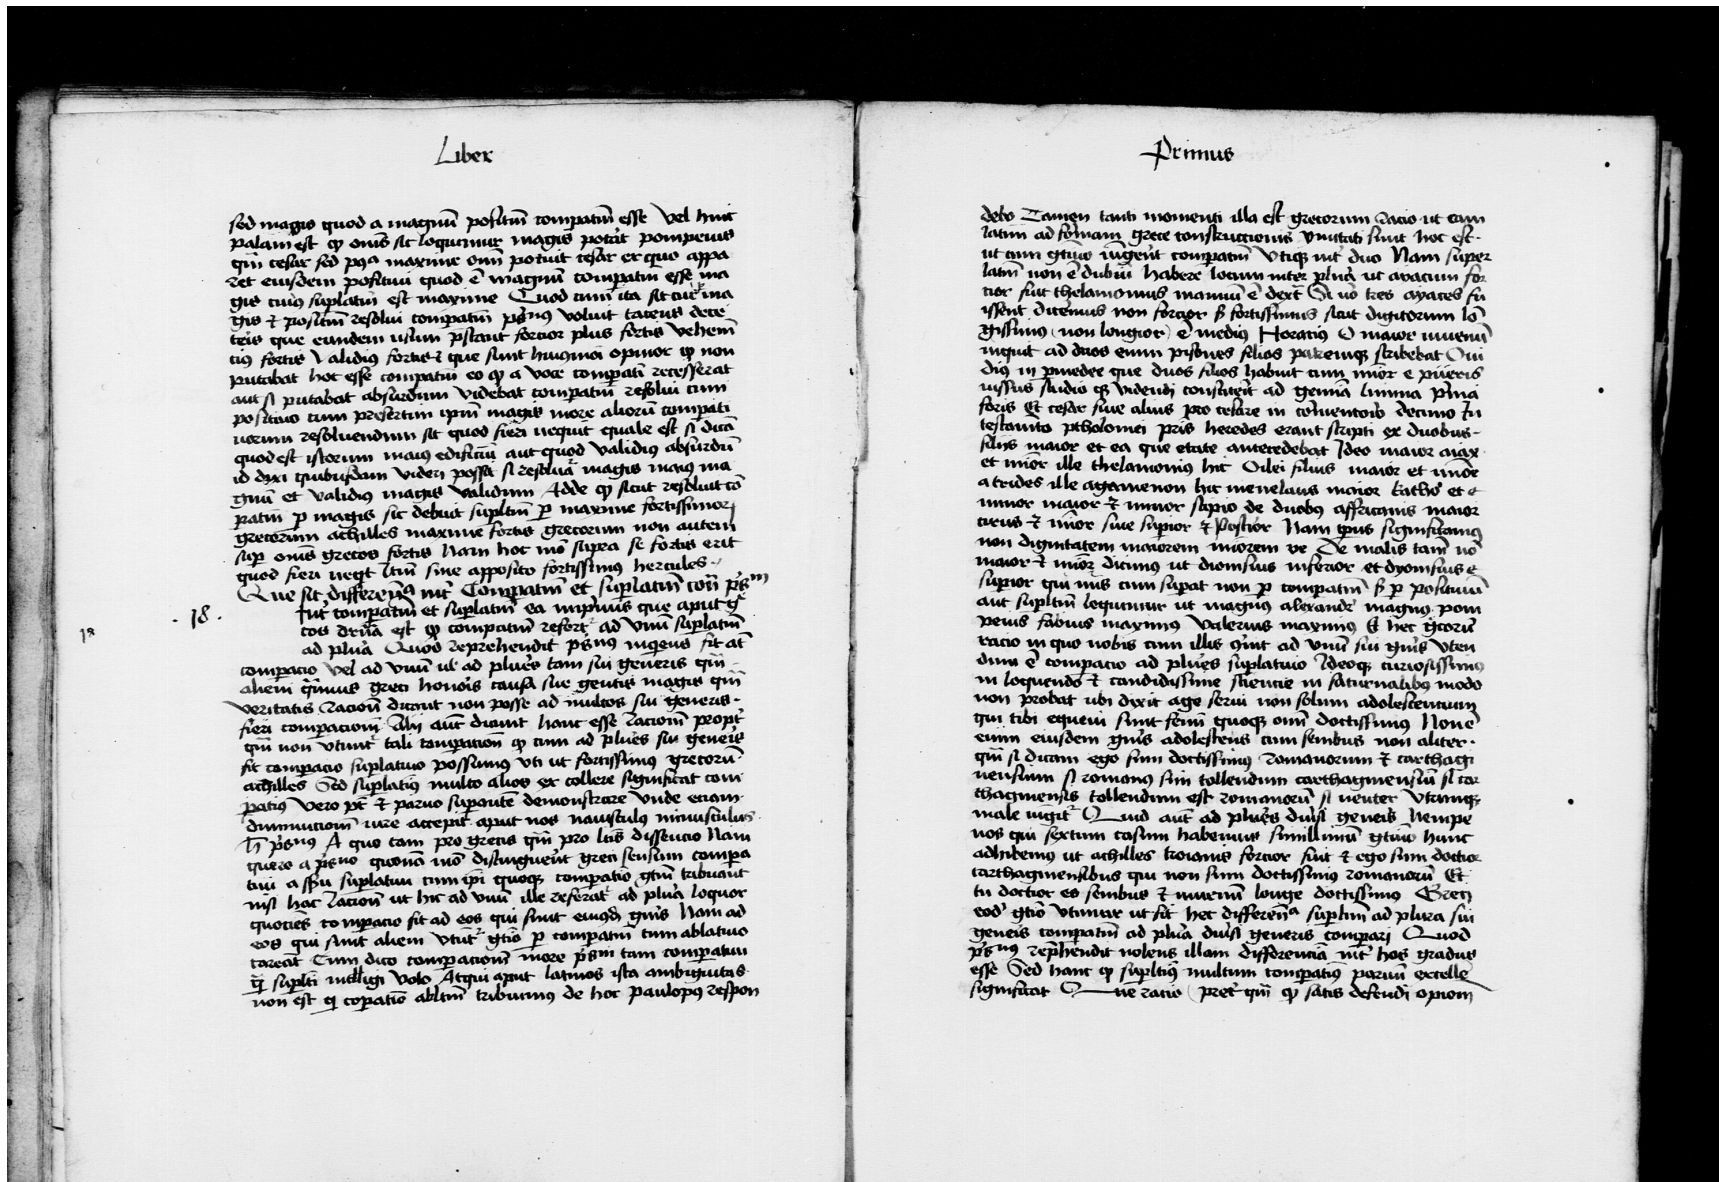 Liber
sed magis quod a magnū positiuū compatiuū esse Vel hinc
palam est ꝙ om̄s sic loquimur magis potuit pompeius
qm̄ cesar sed postea maxime om̄ potuit cesar ex quo appa
ret eiusdem positiui quod ē magnū compatiuū esse ma
gis cuius suplatiuū est maxime Quod cum ita sit cur ma
gis et positiuū resolui compatiuū noluit taceus dece
teris que eundem usum p̄stant fortior plus fortis vehem̄
cius fortis Validius fortis et que sunt huiusmodi opinor ꝙ non
putabat hoc esse compatiuū eo ꝙ a voce compati recesserat
aut si putabat absurdum videbat compatiuū resolui cum
positiuo cum presertim ip̄m magis more aliorū compati
uorum resoluendum sit quod fieri nequit quale est si dicā
quod est istorum maius edificiū aut quod validius absurdū
id dixi quibusdam videri posse si resoluat magis maius ma
gnū et validius magis validum Adde ꝙ sicut resoluit cō
patiuū p magis sic debuit suplatiuū p maxime fortissimorum
grecorum achilles maxime fortis grecorum non autem
sup om̄is grecos fortis Nam hoc mō supra se fortis erit
quod fieri neqt Itm̄ sine apposito fortissimus hercules
Que sit differentia int Compatiuū et suplatiuū
18. Int compatiuū et suplatiuū ea imprimis que aput gre
18 cos dr̄na est ꝙ compatiuū refert ad vnū suplatiuū
ad plura Quod reprehendit inquens fit at
compacio vel ad vnū vel ad plures tam sui generis qm̄
alieni greci honoris causa sue gentis magis qm̄
veritatis racionē dicunt non posse ad multos sui generis
fieri compacionē Alij aut dicunt hanc esse racionē propt
qm̄ non vtunt tali compacionē ꝙ cum ad plures sui generis
fit compacio suplatiuo possumus vti ut fortissimus grecorū
achilles Sed suplatiuus multo alios ex collere significat com
patiuus vero pt et paruo supantē demonstrare Vnde eciam
diminucionē iure accepit aput nos nauisculus minusculus
A quo tam pro grecis qm̄ pro latinis dissencio Nam
quero a quonā mō distinguent greci sensum compa
tiui a suplatiui cum ipi quoque compatio gtiuū tribuant
nisi hac racionē ut hic ad vnū ille referat ad plura loquor
quociens compacio fit ad eos qui sunt eiusdem gn̄is Nam ad
eos qui sunt alieni vtunt gtiō p compatiuū cum ablatiuo
careāt Cum dico compacionē more tam compatiui
qm̄ suplatiui intelligi volo Atqui aput latinos ista ambiguitas
non est qm̄ copatiō abltm̄ tribuimus de hoc paulopus respon
Primus
debo Tamen tanti momenti illa est grecorum racio ut eam
latini ad formam grece construccionis vnitati sunt hoc est
ut cum gtiuo iungerent compatiuū Vtique int duo Nam super
latiuū non ē dubiū habere locum inter plura ut aiacum for
tior fuit thelamonius manuū ē dext Si vō tres ayaces fu
issent diceemus non fortior sed fortissimus sicut digitorum lō
gissimus (non longior) ē medius Horatius O maior iuuenū
inquit ad duos enim pisones filios patremque scribebat Oui
dius in p medee que duos filios habuit cum minor e pueris
iussus studio que videndi constiterit ad gemīa limina prima
foris Et cesar siue alius pro cesare in cōmentorio decimo In
testamēto ptholomei pris heredes erant scripti ex duobus
filijs maior et ea que etate antecedebat Ideo maior aiax
et minor ille thelamonius hic Oilei filius maior et minor
atrides ille agamenon hic menelaus maior katho et
minor maior et minor scipio de duobus affricanis maior
cirus et minor siue superior et posterior Nam significamus
non dignitatem maiorem minorem ve De malis tamē nō
maior et minor dicimus ut dionisius inferior et dyonisius
superior qui nimis cum supat non p compatiuū sed p positiuū
aut supltm̄ loquimur ut magnus alexander magnus pom
peius fabius maximus Valerius maximus Et hec grecorū
racio in quo nobis cum illis conuenit ad vnū sui gn̄is vten
dum ē compacio ad plures suplatiuo Ideoque curiosissimus
in loquendo et candidissime sciencie in saturnalibus modo
non probat ubi dixit age serui non solum adolescencium
qui tibi equeui sunt senū quoque om̄ doctissimus Non ē
enim eiusdem gn̄is adolescens cum senibus non aliter
qm̄ si dicam ego sum doctissimus romanorum et carthagi
nensium si romanus sim tollendum carthaginensiū si car
thaginensis tollendum est romanorū si neuter Vtrumque
male iungit Quid aut ad plures diuisi generis Nempe
nos qui sextum casum habemus simillimū gtiuo hunc
adhibemus ut achilles troianis fortior fuit et ego sum doctior
carthaginensibus qui non sum doctissimus romanorū Et
tu doctior es senibus et iuuenū longe doctissimus Greci
eodem gtiō vtuntur ut sit hec differentia supltm̄ ad plura sui
generis compatiuū ad plura diuisi generis comparari Quod
reprehendit nolens illam differenciā int hos gradus
esse Sed hanc ꝙ supltiuus multum compatiuus parum excelle
significat Que racio (preter qm̄ ꝙ satis defendi opiom